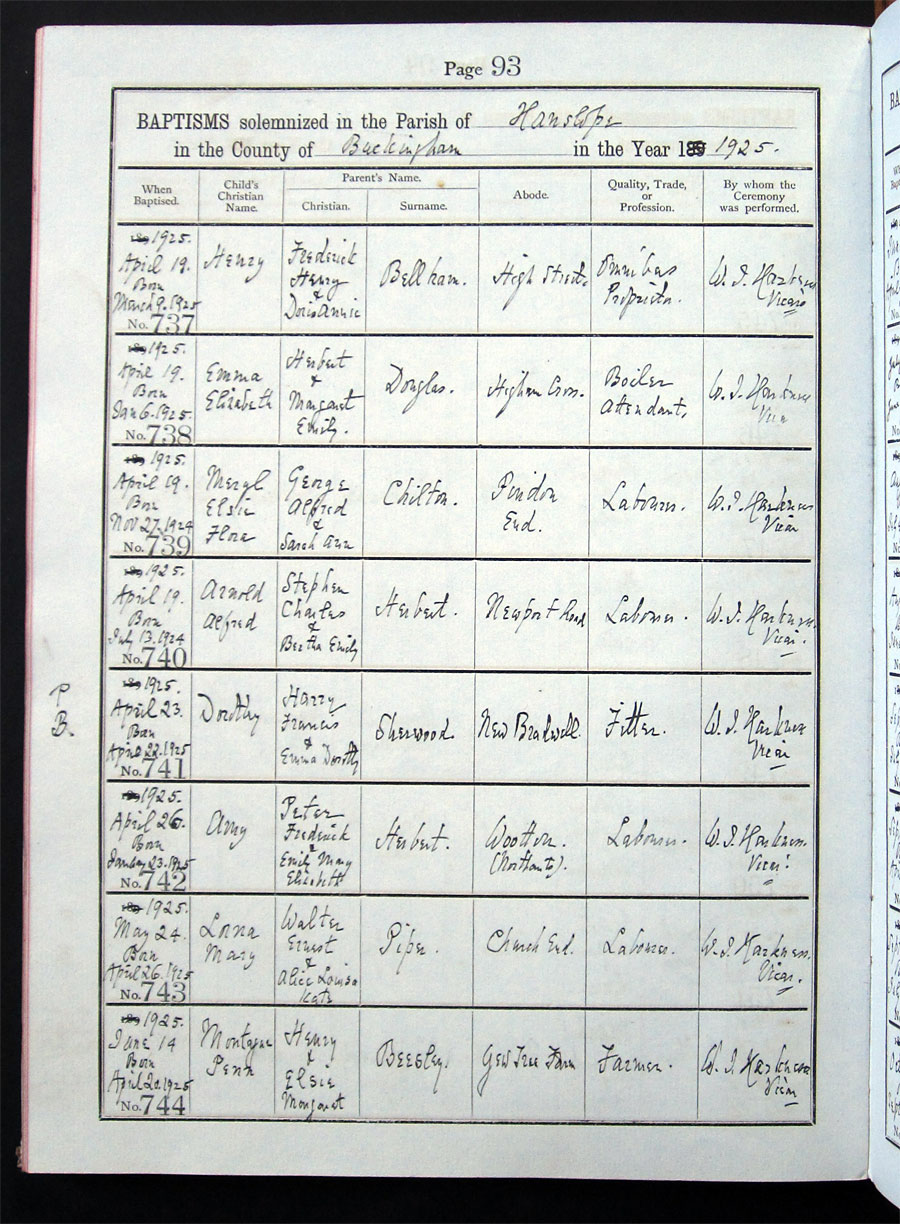 Page 93
BAPTISMS solemnized in the Parish of Hanslope
in the County of Buckingham in the Year 189 1925.
When Baptised.
Child's Christian Name.
Parent's Name.
Christian.
Surname.
Abode.
Quality, Trade, or Profession.
By whom the Ceremony was performed.
189 1925.
April 19.
Born
March 9. 1925
No. 737
Henry
Frederick
Henry
&
Doris Annie
Bellham.
High Street.
Omnibus
Proprietor.
W. J. Harkness
Vicar
189 1925.
April 19.
Born
Jan 6. 1925.
No. 738
Emma
Elizabeth
Herbert
&
Margaret
Emily.
Douglas.
Higham Cross.
Boiler
Attendant.
W. J. Harkness
Vicar
189 1925.
April 19.
Born
Nov 27. 1924
No. 739
Meryl
Elsie
Flora
George
Alfred
&
Sarah Ann
Chilton.
Pindon
End.
Labourer.
W. J. Harkness
Vicar
189 1925.
April 19.
Born
July 13. 1924
No. 740
Arnold
Alfred
Stephen
Charles
&
Bertha Emily
Herbert.
Newport Road
Labourer.
W. J. Harkness
Vicar.
P
B.
189 1925.
April 23.
Born
April 22. 1925
No. 741
Dorothy
Harry
Francis
&
Emma Dorothy
Sherwood.
New Bradwell.
Fitter.
W. J. Harkness
Vicar
189 1925.
April 26.
Born
January 23. 1925
No. 742
Amy
Peter
Frederick
&
Emily Mary
Elizabeth
Herbert.
Wootton.
(Northants).
Labourer.
W. J. Harkness.
Vicar.
189 1925.
May 24.
Born
April 26. 1925
No. 743
Lorna
Mary
Walter
Ernest
&
Alice Louisa
Kate
Piper.
Church End.
Labourer.
W. J. Harkness.
Vicar.
189 1925.
June 14
Born
April 20. 1925
No. 744
Montague
Penn
Henry
&
Elsie
Margaret
Beesley.
Yew Tree Farm
Farmer.
W. J. Harkness
Vicar